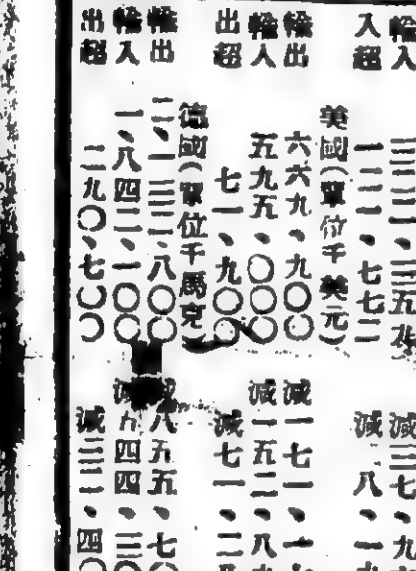 輸入
入超　一二二、七七二　減　八、一
美國(單位千美元)
輸出　六六九、九〇〇　減一七一、一
輸入　五九五、〇〇〇　減一五二、八
出超　七一、九〇〇　減七一、二
德國(單位千馬克)
輸出　二、一三二、八〇〇　八五五、七〇
輸入　一、八四二、一〇〇　減五四四、三〇
出超　二九〇、七〇〇　減三一一、四〇